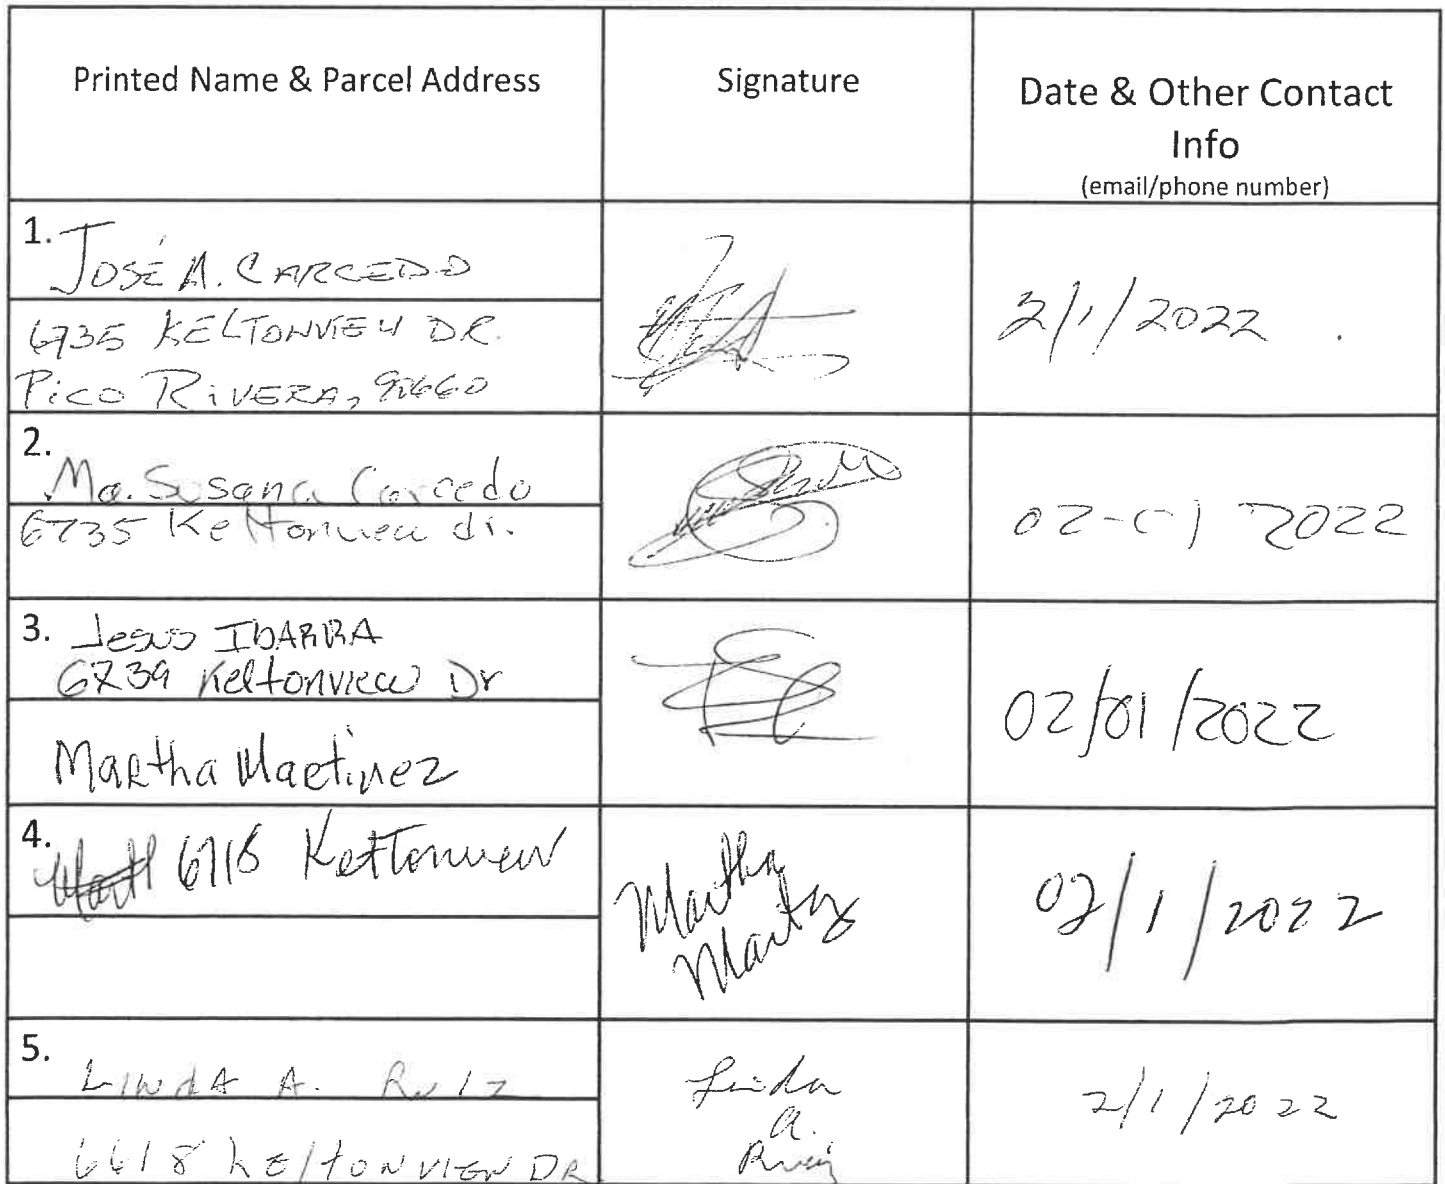 Printed Name & Parcel Address
Signature
Date & Other Contact
Info
(email/phone number)
1. JOSÉ A. CARCEDO
6735 KELTONVIEW DR.
PICO RIVERA, 90660
2/1/2022
2. Ma. Susana Carcedo
6735 Keltonview dr.
02-01 2022
3. Jesus IBARRA
6739 Keltonview Dr
02/01/2022
Martha Martinez
4. 6718 Keltonview
Martha
02/1/2022
5. LINDA A. RUIZ
6618 KELTONVIEW DR
Linda
A.
Ruiz
2/1/2022